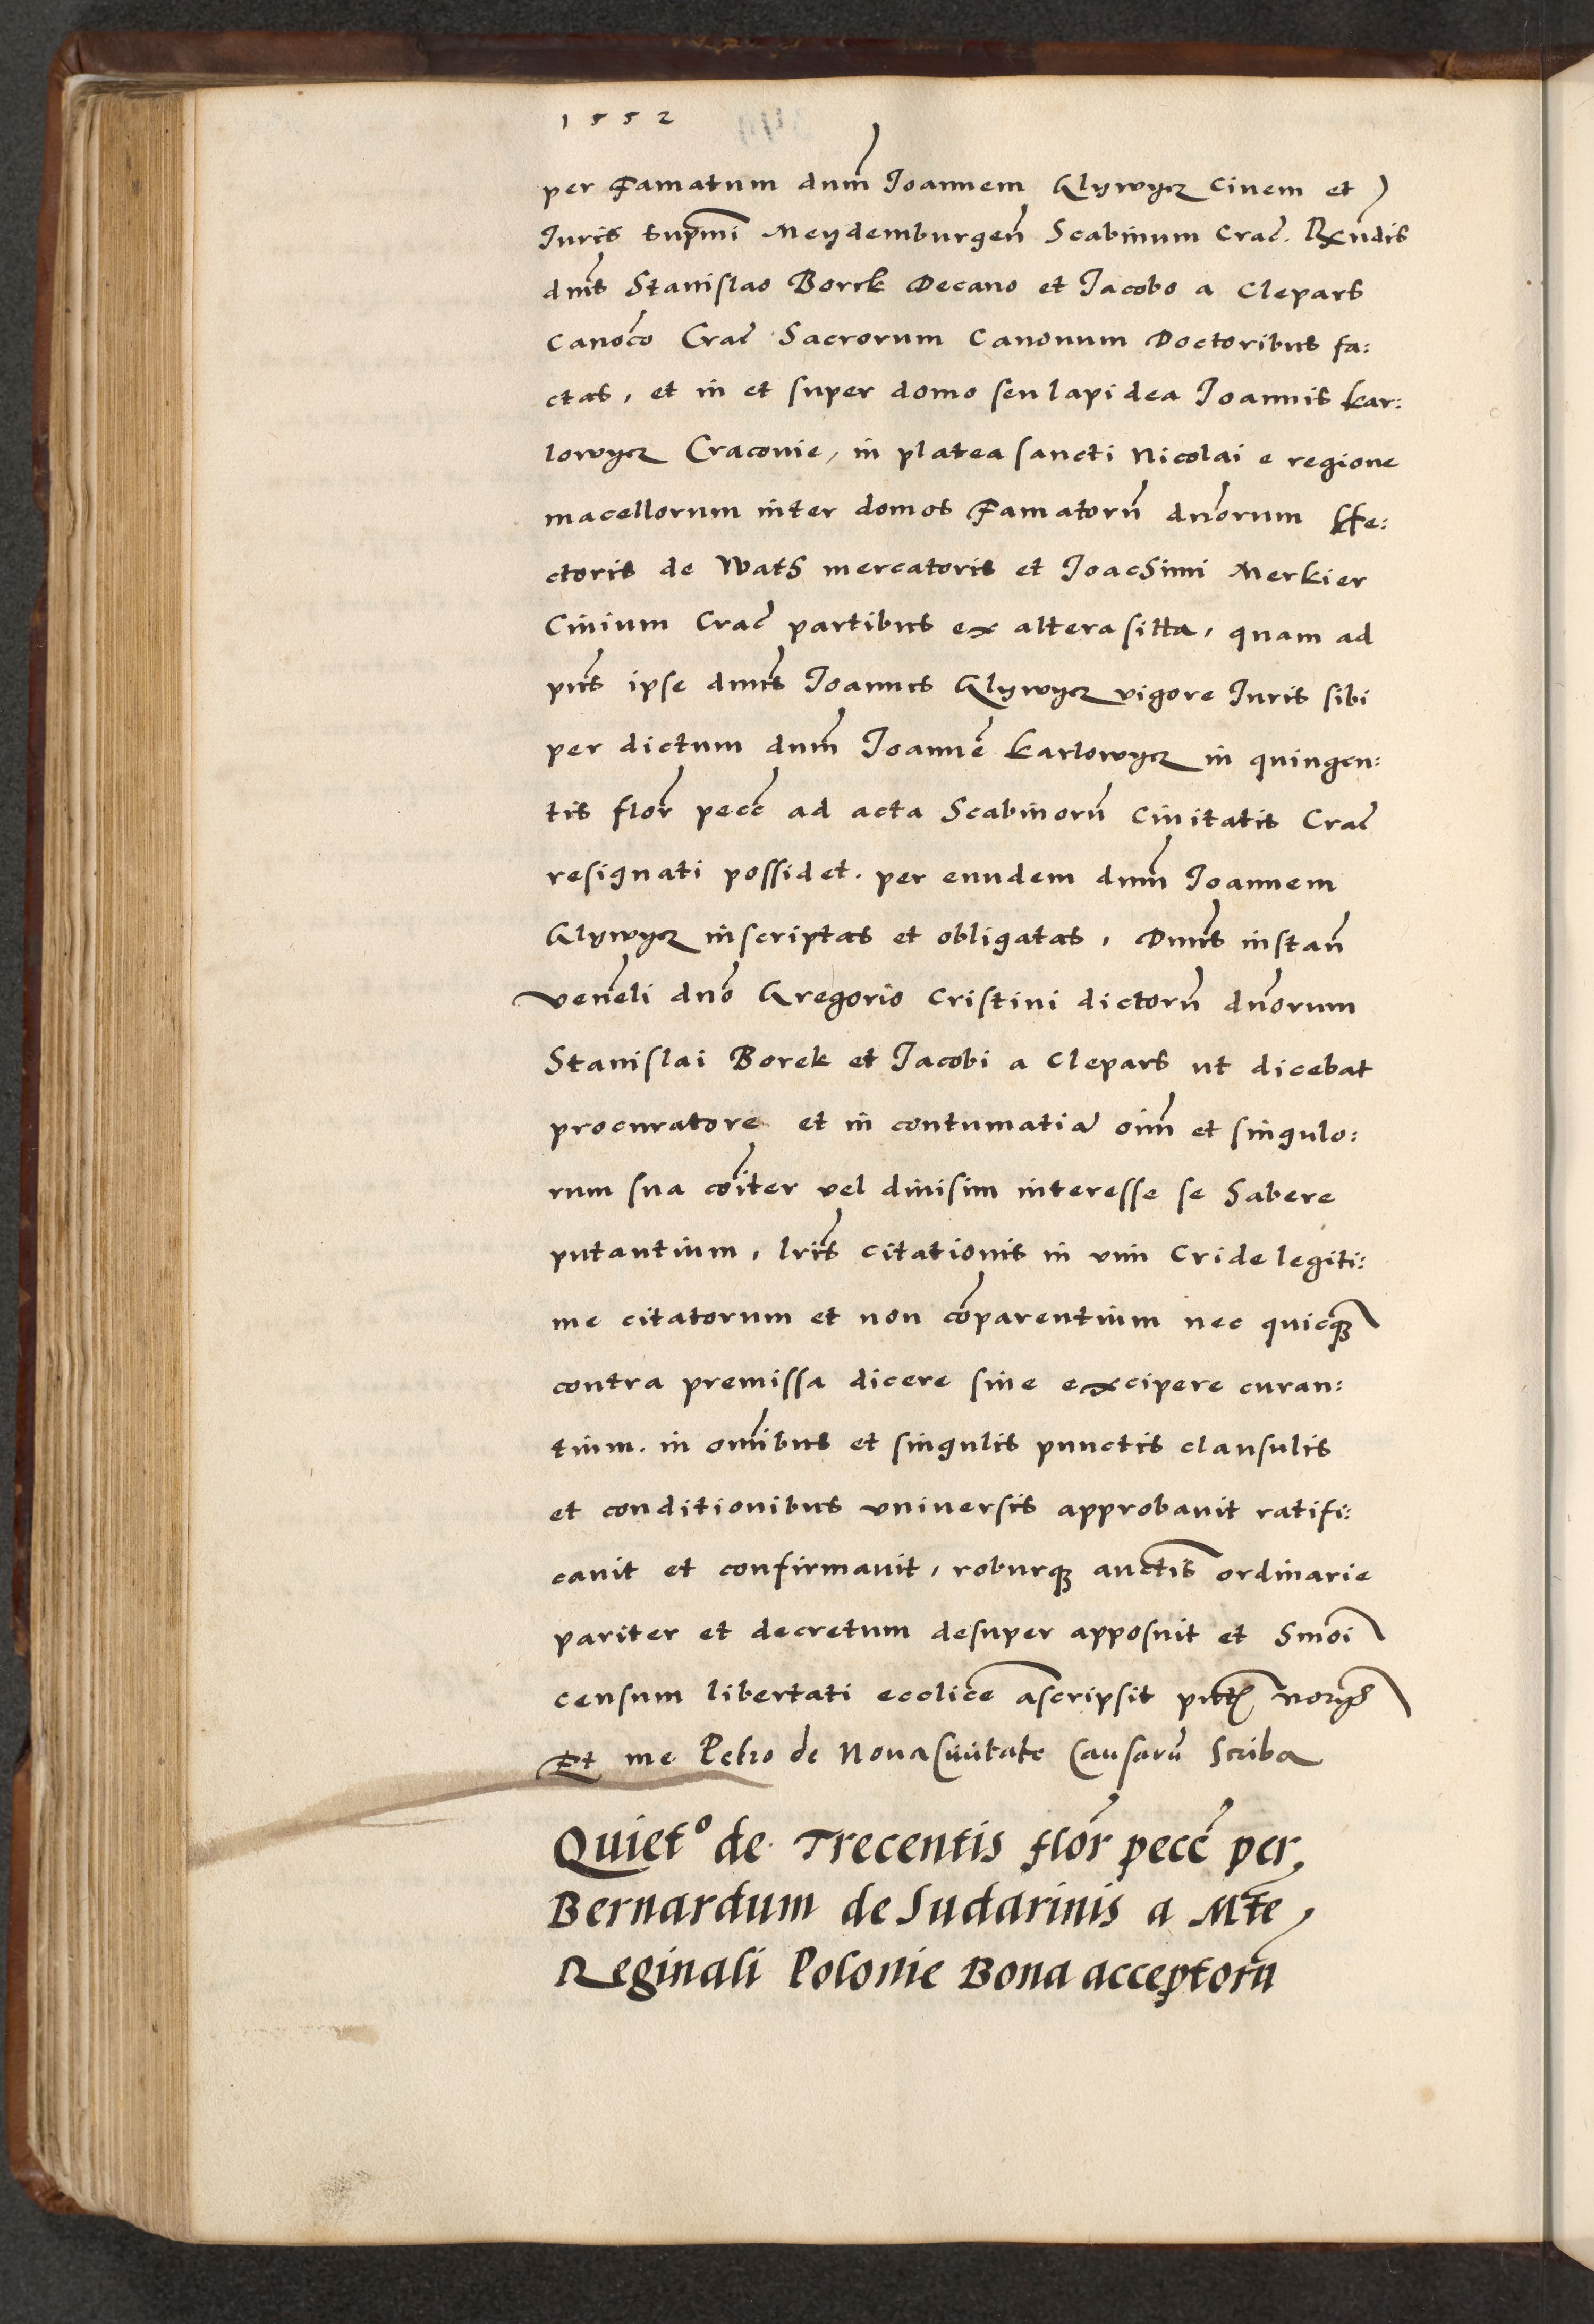 1552
per Famatum dnm̄ Joannem Glywycz Ciuem et
Juris supmi Meydemburgen̄ Scabinum Crac̄. Rxndis
dnis Stanislao Borek Decano et Jacobo a Clepars
Canoco Crac̄ Sacrorum Canonum Doctoribus fa:
ctas, et in et super domo seu lapidea Joannis Kar:
lowycz Craconie, in platea sancti Nicolai e regione
macellorum inter domos Famatorū dnorum
ctoris de Wath mercatoris et Joachimi Merkier
Ciuium Crac̄ partibus ex altera sitta, quam ad
pns ipse dnns Joannes Glywycz vigore Juris sibi
per dictum dnm̄ Joannē Karlowycz in quingen:
tis flor̄ pecc̄ ad acta Scabinorū Ciuitatis Crac̄
resignati possidet. per eundem dnm̄ Joannem
Glywycz inscriptas et obligatas, Dnns instan̄
venēli dnō Gregorio Cristini dictorū dnorum
Stanislai Borek et Jacobi a Clepars ut dicebat
procuratore et in contumatiā oīm et singulo:
rum sua cōiter vel diuisim interesse se habere
putantium, lris citationis in vim Cride legiti:
me citatorum et non cōparentium nec quicqȝ
contra premissa dicere siue excipere curan:
tium. in omībus et singulis punctis clausulis
et conditionibus vniuersis approbauit ratifi:
cauit et confirmauit, roburqȝ auctis ordinarie
pariter et decretum desuper apposuit et hmōi
censum libertati ecclice ascripsit
Et me Petro de Nouaciuitate Causarū Scriba
Quietº de Trecentis flor̄ pecc̄ per
Bernardum de Sudarinis a Mte
Reginali Polonie Bona acceptorū